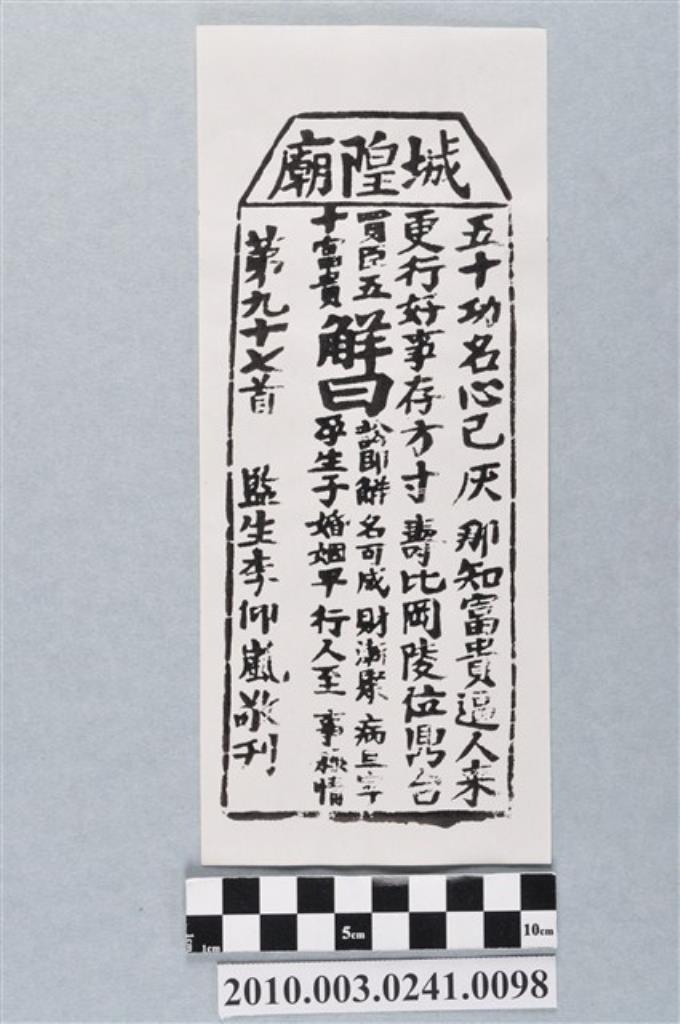 城隍廟
五十功名心已灰 那知富貴逼人來
更行好事存方寸 壽比岡陵位鼎台
買臣五
十富貴
解曰
訟即解 名可成 財漸聚 病且寧
孕生子 婚姻平 行人至 事稱情
第九十七首 監生李仰嵐敬刊
5cm
10cm
1cm
2010.003.0241.0098